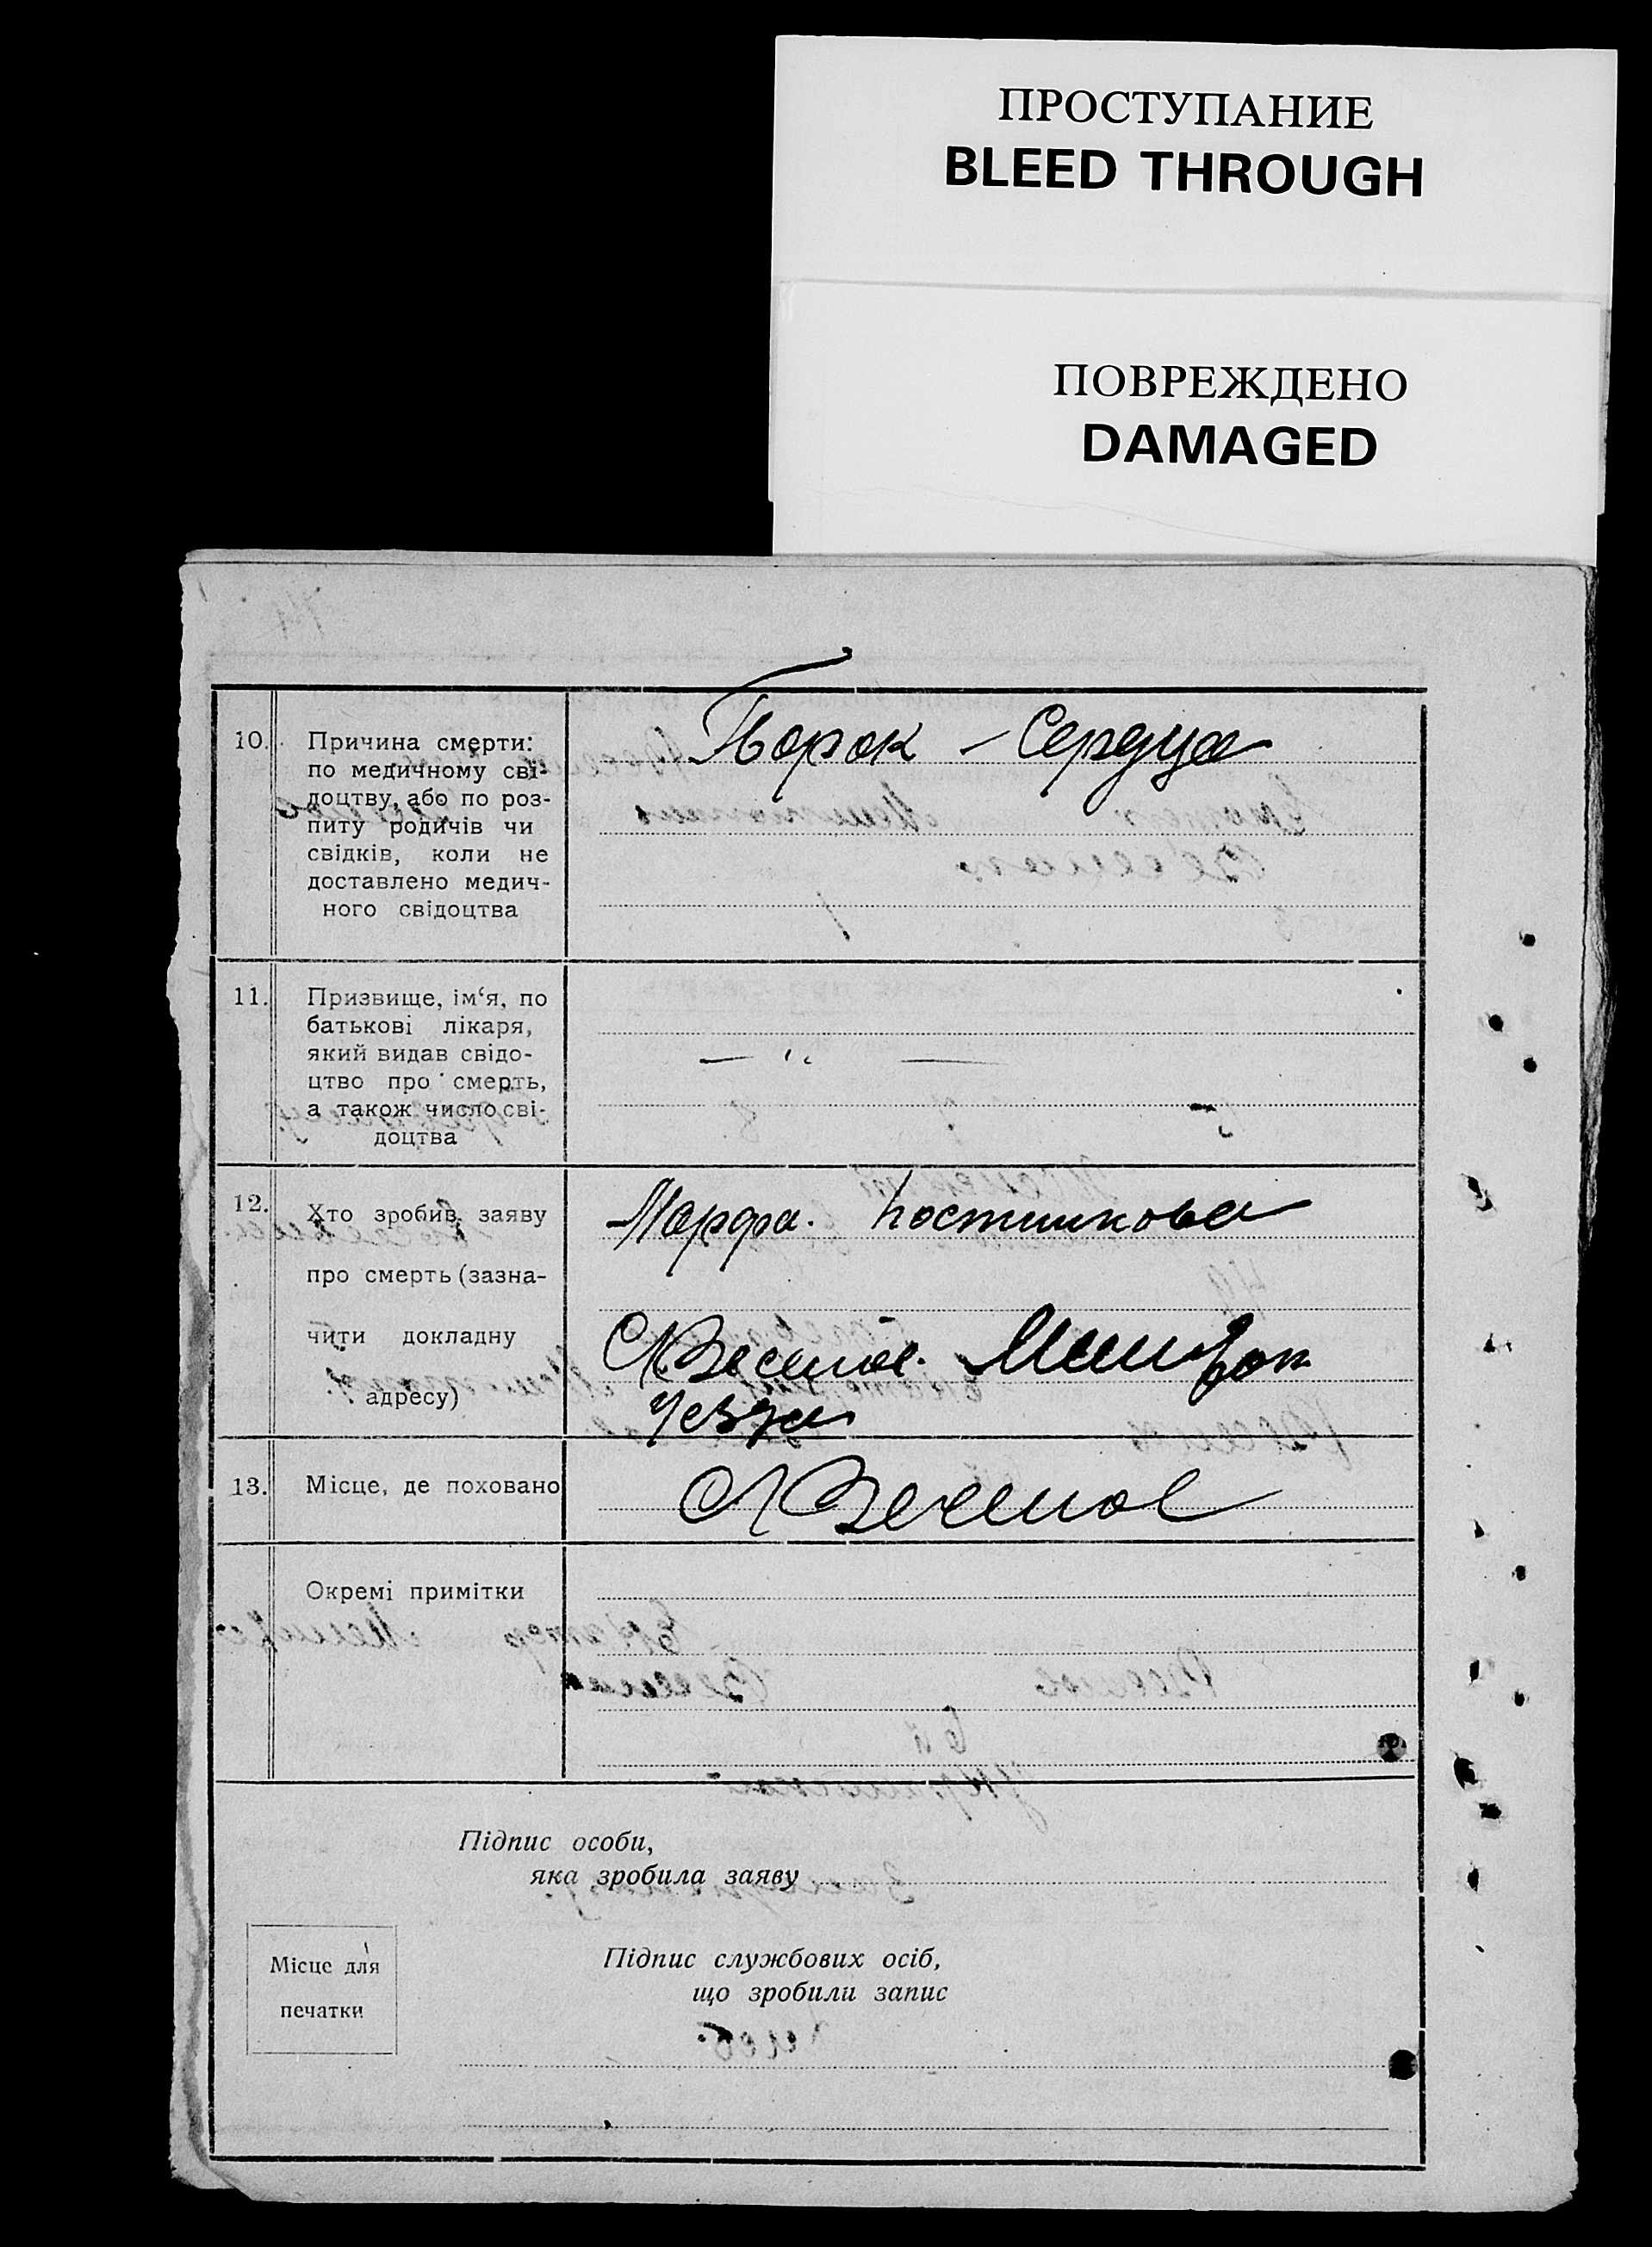 ПРОСТУПАНИЕ
BLEED THROUGH
ПОВРЕЖДЕНО
DAMAGED
10. Причина смерти: Порок - Сердца
по медичному сві-
доцтву, або по роз-
питу родичів чи
свідків, коли не
доставлено медич-
ного свідоцтва
11. Призвище, ім‘я, по
батькові лікаря,
який видав свідо-
цтво про смерть, — " —
а також число сві-
доцтва
12. Хто зробив заяву Марфа. Постникова
про смерть (зазна-
чити докладну с Веселое.
адресу)
13. Місце, де поховано с Веселое
Окремі примітки
Підпис особи,
яка зробила заяву
Місце для
печатки
Підпис службових осіб,
що зробили запис